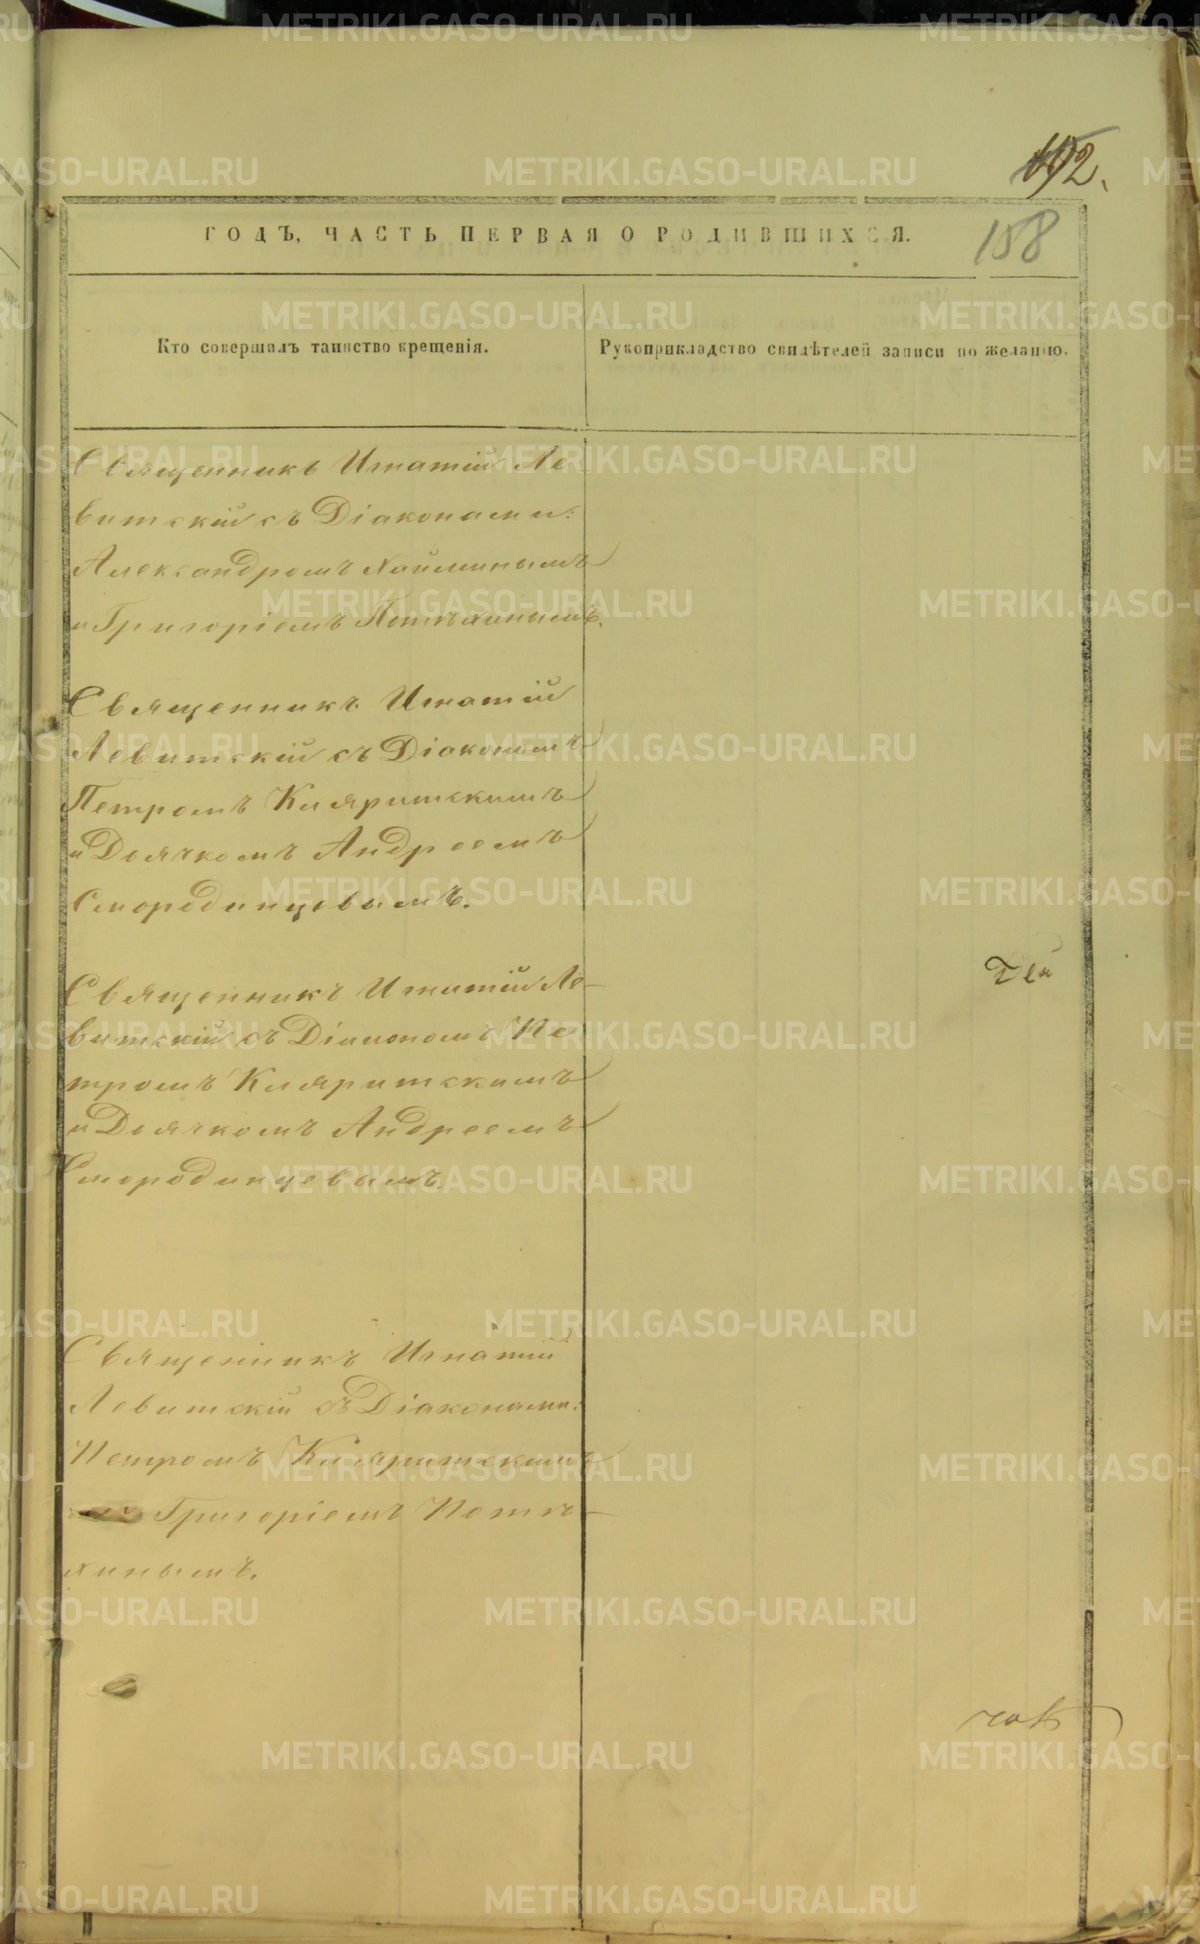 192.
ГОДЪ, ЧАСТЬ ПЕРВАЯ О РОДИВШИХСЯ.
158
Кто совершилъ таинство крещенія.
Рукоприкладство свидѣтелей записи по желанію.
Священникъ Игнатій Ле-
витскій съ Діаконами:
Александромъ
и Григоріемъ Потѣхинымъ.
Священникъ Игнатій
Левитскій съ Діакономъ
Петромъ Кляритскимъ
и Дьячкомъ Андреемъ
Смородинцовымъ.
Священникъ Игнатій Ле-
витскій съ Діакономъ Пе
тромъ Кляритскимъ
и Дьячкомъ Андреемъ
Смородинцевымъ.
Священникъ Игнатій
Левитскій съ Діаконами:
Петромъ Кляритскимъ
Григоріемъ Потѣ-
хинымъ.
METRIKI.GASO-URAL.RU